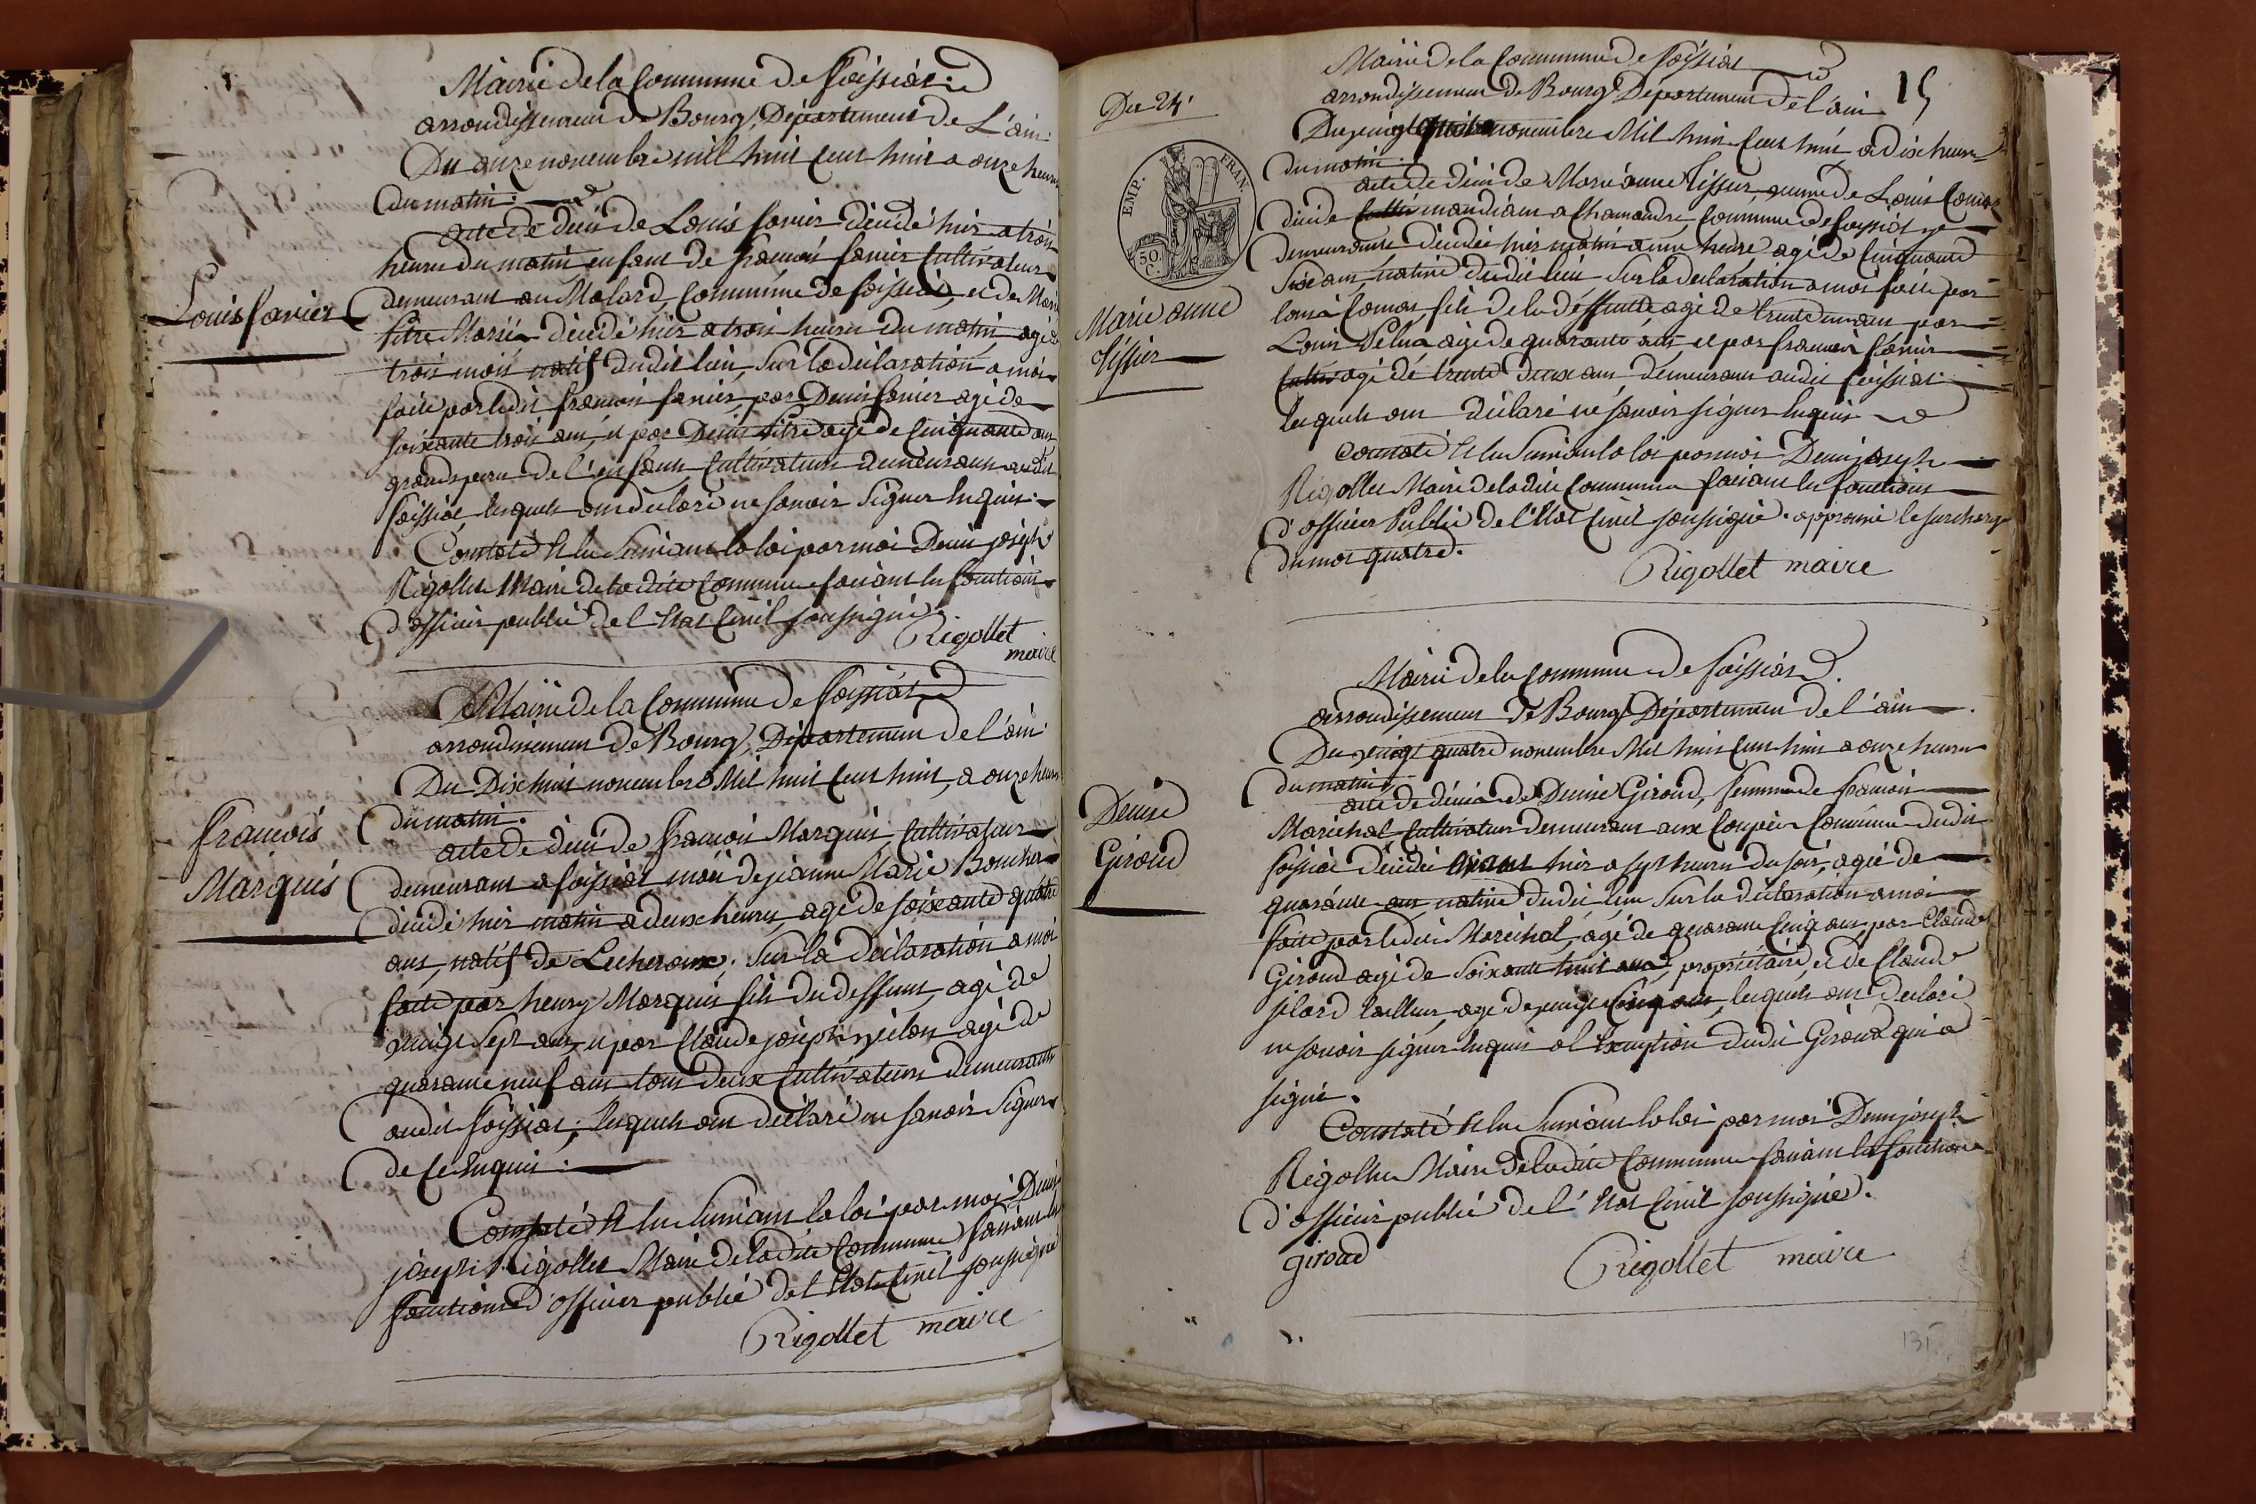 Mairie de la Commune de foissiat
arrondissement de Bourg, Département de L'ain.
Du onze novembre mil huit cent huit a onze heures
du matin.
acte de décès de Louis favier décédé hier a trois
heures du matin enfant de francois favier Cultivateur
demeurant au Molard, Commune de foissiat, et de Marie
Louis favier
Pitre Mariés décédé hier a trois heures du matin agé de
trois mois natif dudit lieu, sur la déclaration a moi
faite par ledit francois favier, par Denis favier agé de
soixante trois ans, et par Denis Pitre agé de cinquante ans
grands peres de l'enfant, Cultivateurs demeurants audit
foissiat, lesquels ont déclaré ne savoir signer Enquis.
Constaté Et lu suivant la loi par moi Denis joseph
Rigollet Maire de la dite Commune faisant les fonctions
d'officier public de l'Etat Civil soussigné.
Rigollet
maire
Mairie de la Commune de foissiat
arrondissement de Bourg, Département de l'ain
Du Dix huit novembre Mil huit cent huit, a onze heures
du matin.
francois
Marquis
acte de décès de francois Marquis, Cultivateur
demeurant a foissiat mari de jeanne Marie Boucher
décédé hier matin a deux heures, agé de soixante quatre
ans, natif de Lecheroux, sur la déclaration a moi
faite par henry Marquis fils du deffunt, agé de
vingt sept ans, et par Claude joseph agé de
quarante neuf ans tous deux Cultivateurs demeurants
audit foissiat, lesquels ont déclaré ne savoir signer
de ce Enquis.
Constaté Et lu suivant la loi par moi Denis
joseph Rigollet Maire de la dite Commune faisant les
fonctions d'officier public de l'Etat Civil soussigné
Rigollet maire
15
Mairie de la Commune de foissiat
arrondissement de Bourg Département de l'ain
Du 24
Du vingt quatre novembre Mil huit cent huit a dix heures
du matin.
EMP. FRAN.
50 C.
acte de décès de Marie anne Tissier, veuve de Louis Comas
décédé mandiant a Chamandre, Commune de foissiat y
demeurante décédée hier matin a une heure, agé de Cinquante
Six ans, native dudit lieu sur la déclaration a moi faite par
Marie anne
Tissier
Louis Comas, fils de la deffunte agé de trente un ans par
Louis Peluà agé de quarante ans, et par francois favier
agé de trente deux ans, demeurants audit foissiat
lesquels ont déclaré ne savoir signer Enquis
Constaté Et lu suivant la loi par moi Denis joseph
Rigollet Maire de la dite Commune faisant les fonctions
d'officier Public de l'Etat Civil soussigné. approuvé la surcharge
du mot quatre.
Rigollet maire
Mairie de la Commune de foissiat.
arrondissement de Bourg Département de l'ain.
Du vingt quatre novembre Mil huit cent huit a onze heures
du matin,
Denise
Giroud
acte de décès de Denise Giroud, femme de francois
Maréchal Cultivateur demeurant aux Coupées Commune dudit
foissiat décédée hier a sept heures du soir, agée de
quarante ans native dudit lieu sur la déclaration a moi
faite par ledit Maréchal, agé de quarante cinq ans, par Claude
Giroud agé de Soixante huit ans, propriétaire, et de Claude
jilard tailleur, agé de vingt cinq ans, lesquels ont déclaré
ne savoir signer Enquis a l'Exception dudit Giroud qui a
signé.
Constaté Et lu suivant la loi par moi Denis joseph
Rigollet Maire de la dite Commune faisant les fonctions
d'officier public de l'Etat Civil soussigné.
giroud
Rigollet maire
131